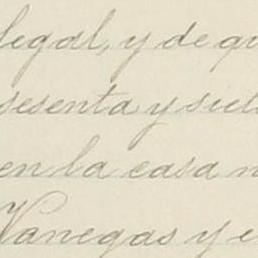 legal, y de qu
sesenta y siet
en la casa n
Vanegas y e